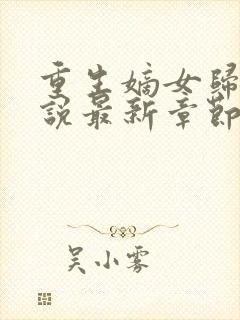 重生嫡女歸
說最新章節
吴小雾